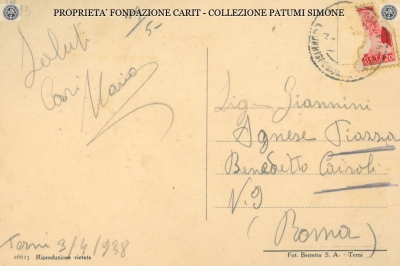 PROPRIETA' FONDAZIONE CARIT - COLLEZIONE PATUMI SIMONE
Saluti
Cari Mario
Sig Giannini
Agnese Piazza
Benedetto Cairoli
N. 9
(Roma)
Terni 3/4/938
26623 Riproduzione vietata
Fot. Berretta S. A. - Terni